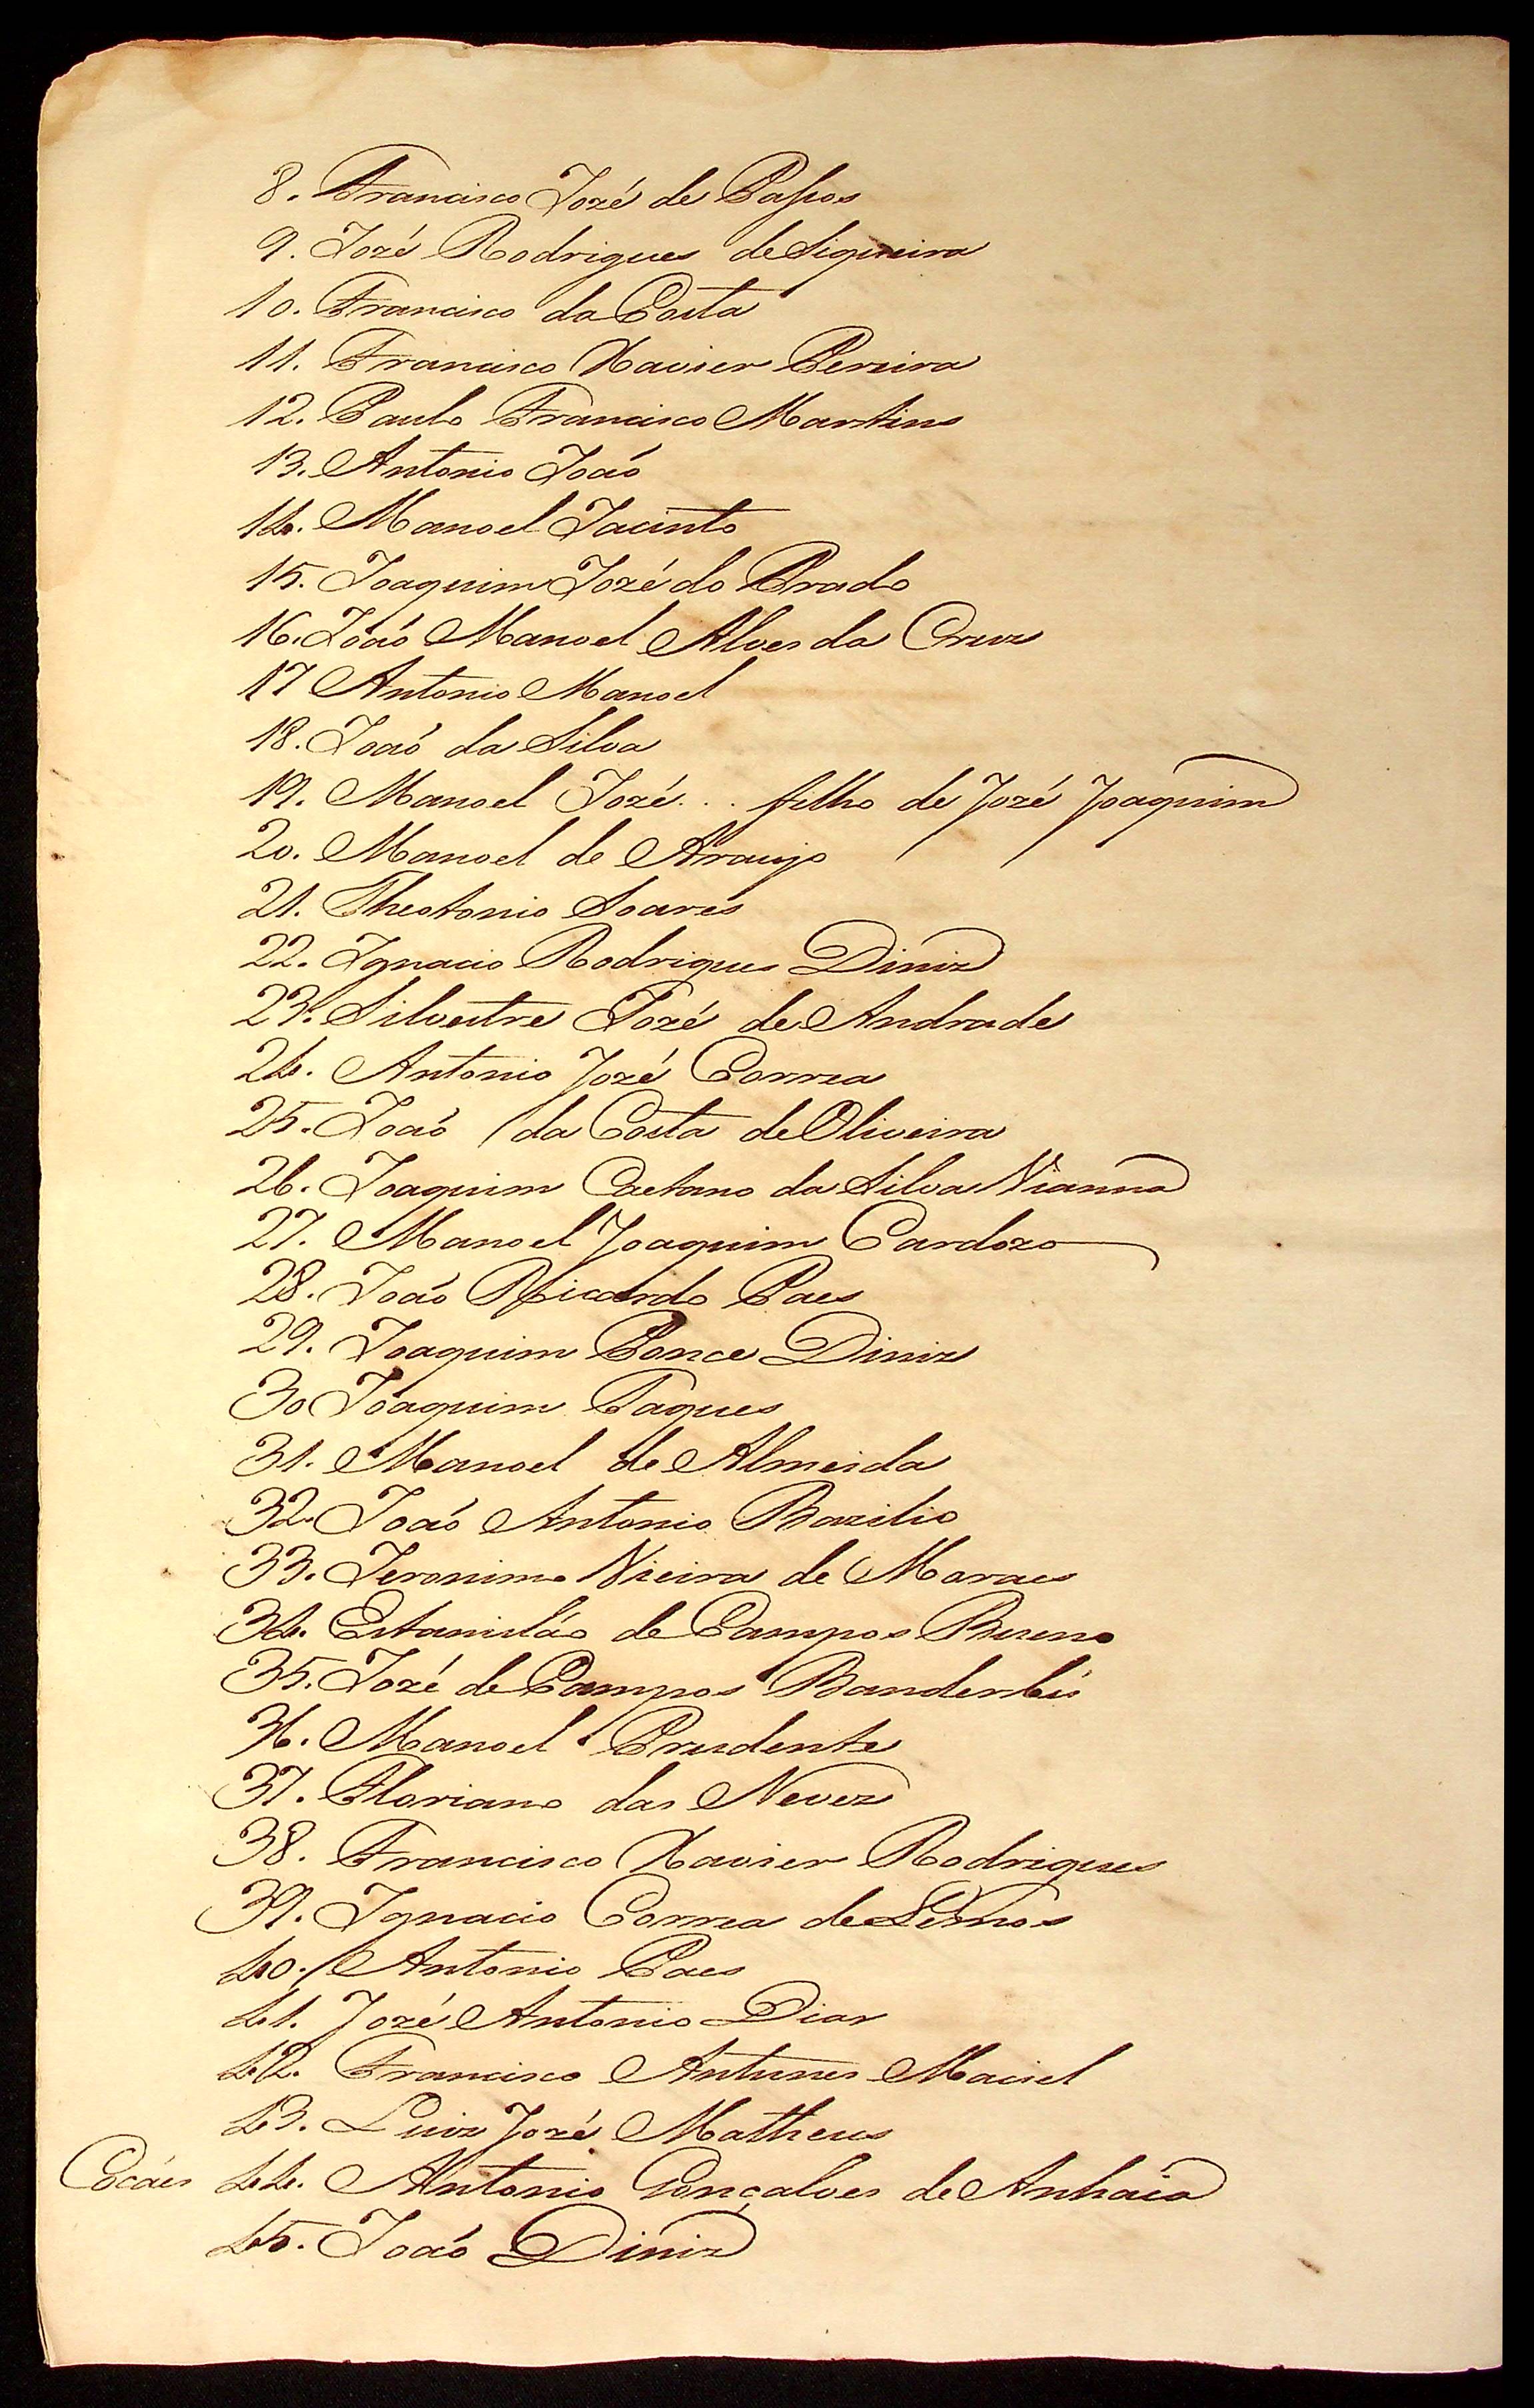 8. Francisco Jozé de Passos
9. Jozé Rodrigues de Siqueira
10. Francisco da Costa
11. Francisco Xavier Pereira
12. Paulo Francisco Martins
13. Antonio Joaõ
14. Manoel Jacinto
15. Joaquim Jozé do Prado
16. Joaõ Manoel Alves da Cruz
17 Antonio Manoel
18. Joaõ da Silva
19. Manoel Jozé... filho de Jozé Joaquim
20. Manoel de Araujo
21. Theotonio Soares
22. Ignacio Rodrigues Diniz
23. Silvestre Jozé de Andrade
24. Antonio Jozé Correa
25. Joaõ da Costa de Oliveira
26. Joaquim Caetano da Silva Vianna
27. Manoel Joaquim Cardozo
28. Joaõ Ricardo Paes
29. Joaquim Ponce Diniz
30 Joaquim Taques
31. Manoel de Almeida
32. Joaõ Antonio Bazilio
33. Jeronimo Vieira de Moraes
34. Estanisláo de Campos Bueno
35. Jozé de Campos Banderlís
36. Manoel Prudente
37. Floriano das Nevez
38. Francisco Xavier Rodrigues
39. Ignacio Correa de Lemos
40. Antonio Paes
41. Jozé Antonio Dias
42. Francisco Antunes Maciel
43. Luiz Jozé Matheus
Cocáes 44. Antonio Gonçalves de Anhaia
45. Joaõ Diniz